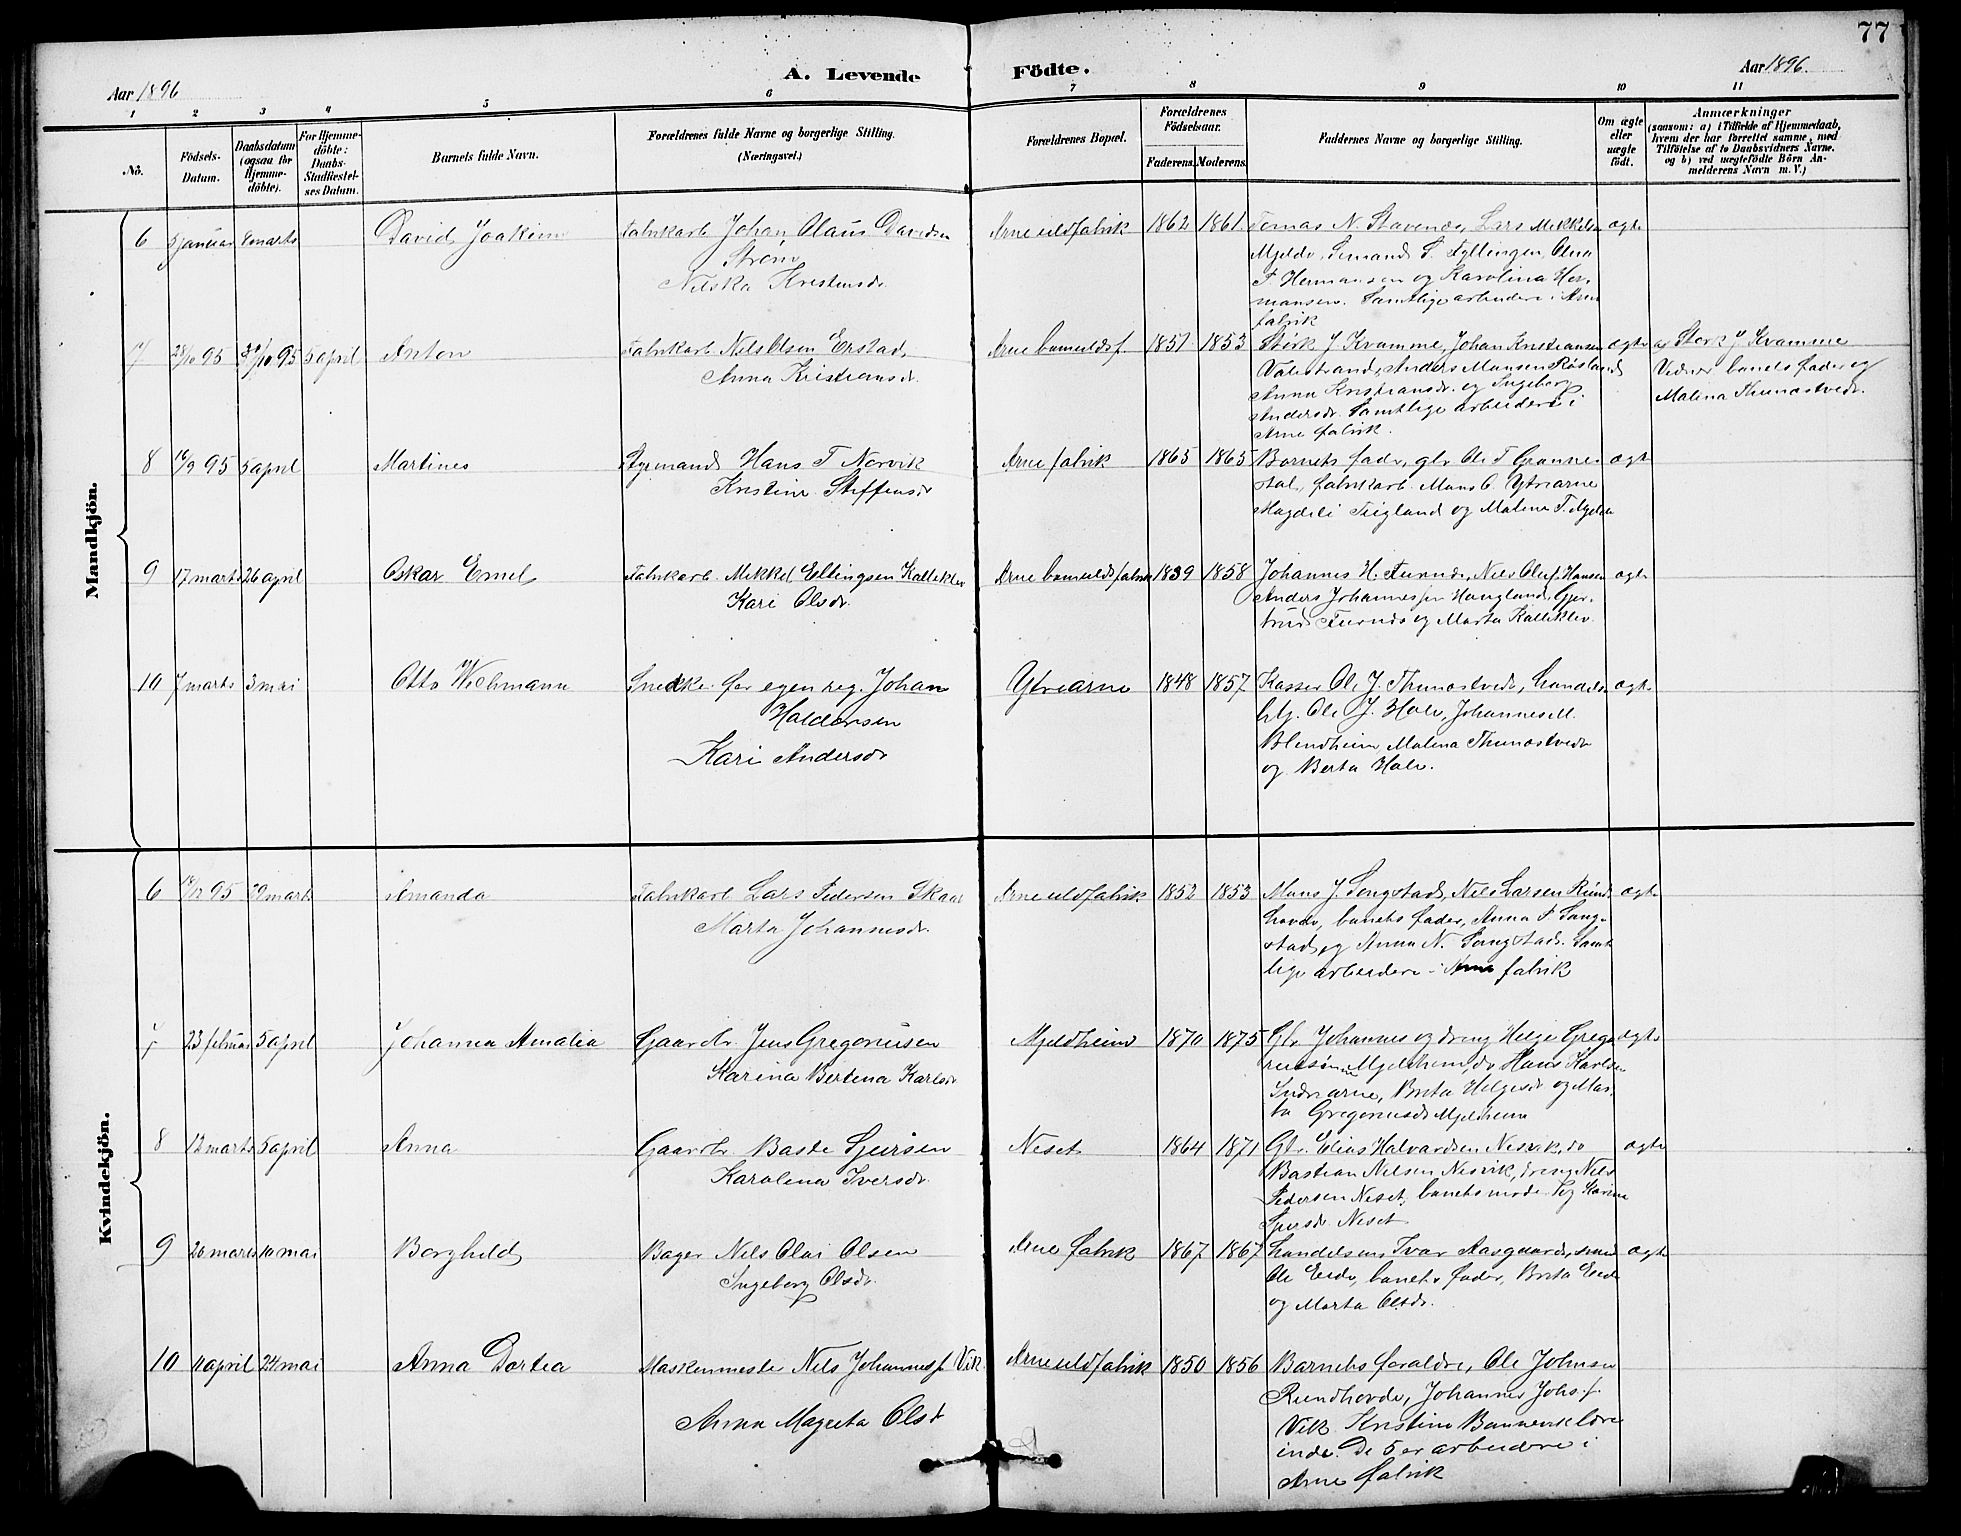 77
Aar 1896
A. Levende Födte.
Aar 1896.
1 2 3 4 5 6 7 8 9 10 11
No.
Födsels-Datum.
Daabsdatum (ogsaa for Hjemmedöbte).
For Hjemmedöbte: Daabs-Stadfæstelses Datum.
Barnets fulde Navn.
Forældrenes fulde Navne og borgerlige Stilling.
(Næringsvei.)
Forældrenes Bopæl.
Forældrenes Födselsaar.
Faderens. Moderens.
Faddernes Navne og borgerlige Stilling.
Om ægte eller uægte födt.
Anmærkninger
(saasom: a) i Tilfælde af Hjemmedaab, hvem der har forrettet samme, med Tilföielse af to Daabsvidners Navne. og b) ved uægtefödte Börn Anmelderens Navn m. V.)
Mandkjön.
6 5 januar 8 marts David Joakim Fabrikarb. Johan Olaus Davidsen Arne uldfabrik 1862 1861. Tomas N. Stavenes, Lars Mikkelsen ægte
Ström Mjelde, Fyllingen, Olina
Nilska Kristensdr. Hermansen og Karolina Her-
mansen. Samtlige arbeidere i Arne
fabrik
7 28/10 95 95 5 april Anton Fabrikarb. Nils Olsen Erstad, Arne bomuldsf. 1851 1853 Störk J. Kvamme, Johan Kristiansen ægte a, Störk J. Kvamme
Anna Kristiansdr. Valestrand, Anders Monsen Røsland Vidner barnets fader og
Anna Kristiansdr. og Ingeborg Malina Thunestvedt.
Andersdr. Samtlige arbeidere i
Arne fabrik.
8 95 5 april Martines Styrmand Hans T. Nervik Arne fabrik 1865 1865 Barnets fader, gbr. Ole T. Grønnes- ægte
Kristine Steffensdr. dal, fabrikarb. Mons O. Ytrearne
Magdeli Teigland og Malene T.
9 17 marts 26 april Oskar Emil Fabrikarb. Mikkel Ellingsen Kalleklev Arne bomuldsfabrik 1839 1858 Johannes H. Furnes, Nils Oluf Hansen ægte
Kari Olsdr. Anders Johannessen Haugland, Gjer-
trud Furnes og Marta Kalleklev.
10 7 marts 3 mai Otto Wichmann Snedker for egen reg. Johan Ytrearne 1848 1857 Kasser Ole J. Thunestvedt, handels- ægte
Haldorsen Ole J. Hole, Johannes M.
Kari Andersdr. Blendheim, Malena Thunestvedt
og Berta Hole.
Kvindekjön.
6 95 29 marts Amanda Fabrikarb. Lars Pedersen Skaar Arne uldfabrik 1852 1853 Mons J. Songstad, Nils Larsen Rund- ægte
Marta Johannesdr. hovde, barnets fader, Anna P. Song-
stad, og Anna N. Songstad. Samt-
lige arbeidere i Arne fabrik
7 23 februar 5 april Johanna Amalia Gaardbr. Jens Gregoriusen Mjeldheim 1870 1875 Gbr. Johannes og dreng Helge Grego- ægte
Karina Bertina Karlsdr. riussøn Mjeldheim, do Hans Karlsen
Indrearne, Brita Helgesdr. og Mar-
ta Gregoriusdr. Mjeldheim
8 12 marts 5 april Anna Gaardbr. Baste Sjursen Neset 1864 1871 Gbr. Elias Halvardsen Nesvik, do ægte
Karolina Iversdr. Bastian Nilsen Nesvik, dreng Nils
Pedersen Neset, barnets moder og Karina
Sjursdr. Neset.
9 20 marts 10 mai Borghild Bager Nils Olai Olsen Arne fabrik 1867 1867 Handelsm. Ivar Aasgaard, smed ægte
Ingeborg Olsdr. Ole Eide, barnets fader, Brita Eide
og Marta Olsdr.
10 april 24 mai Anna Dortea Maskinmester Nils Johannes s. Vik. Arne uldfabrik 1850 1856 Barnets foraldre, Ole Johnsen
Anna Magreta Olsdr. Rundhovde, Johannes Johs. s.
Vik Kristine lærer
inde. De 5 er arbeidere i
Arne fabrik